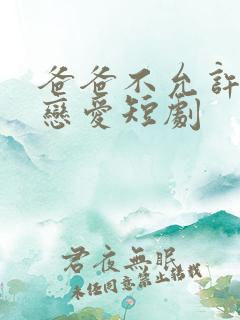 爸爸不允許
戀愛短劇
君夜無眠
未經同意禁止轉載